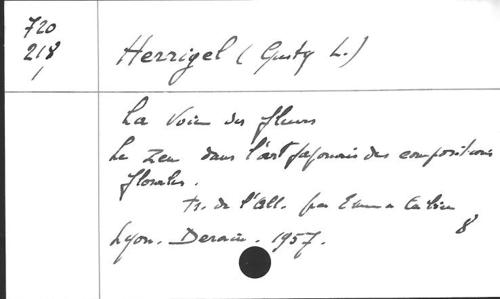 720
218
/
Herrigel (Gusty L.)
La Voie des fleurs
Le Zen dans l'art japonais des compositions
florales.
Tr. de l'All. par Emma
8
Lyon. Derain. 1957.